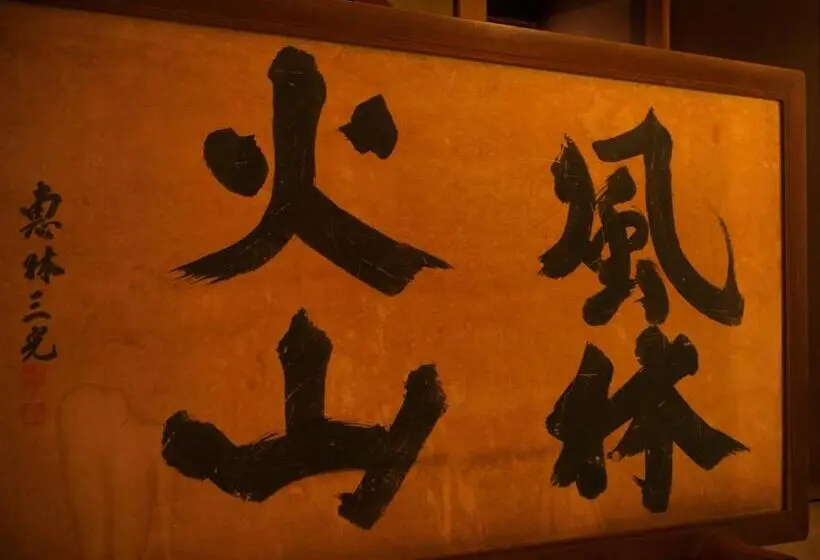 風林
火山
恵林三光